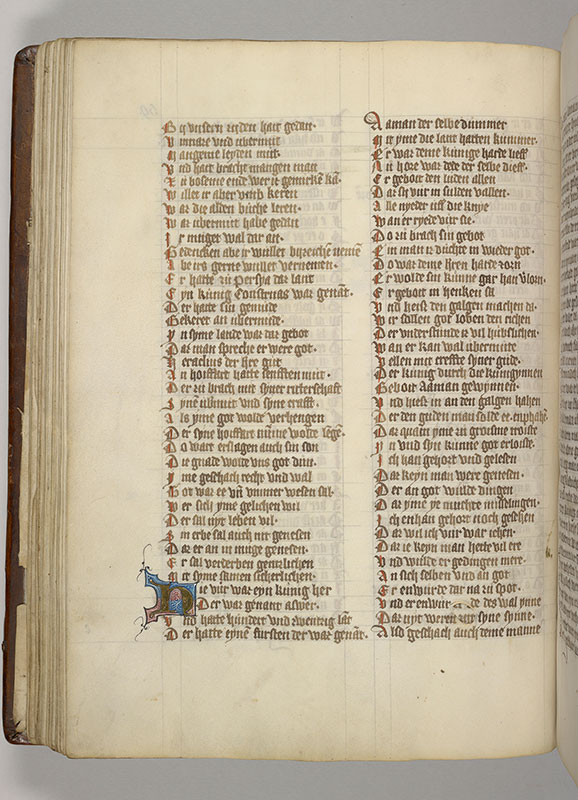 By unsern zijden hait gedait.
V nmare vnd vbermut
M angeme leyden mut.
V nd hait bracht mangen man
Z u boseme ende wer it gemirken kā.
W illet ir aber vmb keren
W ar die alden buche leren.
W ar vbermut habe gedait
I r muget wal dar ait.
Gedencken abe ir wullet
A be irs gerne wullet vernemen.
E r hatte zu Persya dar lant
E yn künig Consdras war genāt.
D er hatte sin gemude
Gekeret an vbermude.
y n syme lande war dat gebot
D at man spreche er were got.
H eraclius der here gut
A n hoiffart hatte senfften mut.
D er zu brach mit syner ritterschaft
I yme vbmut vnd syne crafft.
A ls yme got wolde verhengen
D er syne hoiffart nūme wolde lēgē.
D o wart erslagen auch sin son
D ie gnade wolde vns got dun.
I me geschach recht vnd wal
G ot war ee vn̄ vmmer wesen sal.
W er sich yme gelichen wil
D er sal nyt leben vil.
I m erbe sal auch nit genesen
D at er an in muge genesen.
E r sal verderben gentzlichen
M it syme samen sicherlichen.
Hie vur war eyn künig her
D er war genant aswer.
V nd hatte hundert vnd zwentzig lāt
D er hatte eynē fursten der war genāt.
Aaman der selbe dummer
M it yme die lant hatten kummer.
E r war deme künige harde lieff
A n hore war dede der selbe dieff.
E r gebot den luden allen
D at sij vur in sulden vallen.
A lle nyeder uff die knye
W an er ryede vur sie.
D o zu brach sin gebot
E in man iz duchte in wieder got.
D o wart deme heren harde zorn
E r wolde sin kunne gar han v̄lorn.
E r gebot in henken sa
V nd hieß den galgen machen da.
W ir sollen got loben den richen
D er vnder stunde iz vil hubslichen.
W an er kan wal vbermute
V ellen mit creffte syner gude.
D er künig durch die künigynnen
Gehort Aaman gewynnen.
V nd hieß in an den galgen hahen
D er den guden man solde ee. mphahē.
D at quam yme zu groisme troiste
y n vnd syn kunne got erloste.
I ch han gehort vnd gelesen
D at keyn man were genesen.
D er an got wulde dingen
D at yme ye muchte misselingen.
I ch enhan gehort noch gesehen
D at wil ich vur war iehen.
D at ie keyn man hette vil ere
V nd wulde er gedingen mere.
A n sich selben vnd an got
E r enwurde dar na zu spot.
V nd er enwur de des wal ynne
D at nyt weren syne synne.
Also geschach auch deme manne